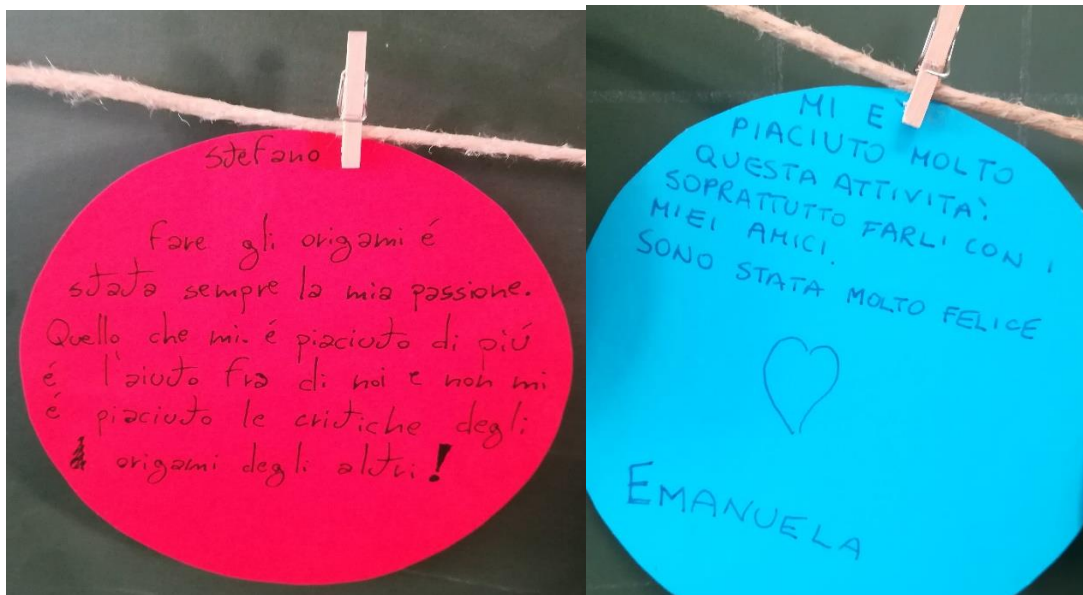 Stefano
Fare gli origami é
stata sempre la mia passione.
Quello che mi é piaciuto di piú
é l'aiuto fra di noi e non mi
é piaciuto le critiche degli
origami degli altri!
MI E'
PIACIUTO MOLTO
QUESTA ATTIVITA'
SOPRATTUTTO FARLI CON I
MIEI AMICI.
SONO STATA MOLTO FELICE
EMANUELA